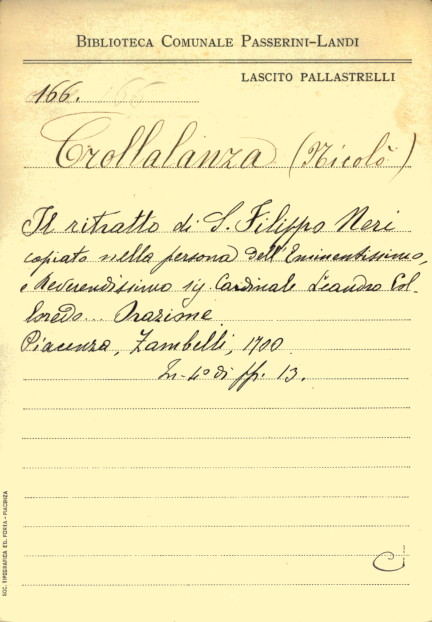 BIBLIOTECA COMUNALE PASSERINI-LANDI
LASCITO PALLASTRELLI
166. 166
Crollalanza (Nicolò)
Il ritratto di S. Filippo Neri
copiato nella persona dell'Eminentissimo,
e Reverendissimo sig Cardinale Leandro Col-
loredo... Orazione
Piacenza, Zambelli, 1700.
In-4° di ff. 13.
SOC. TIPOGRAFICA ED. PORTA - PIACENZA